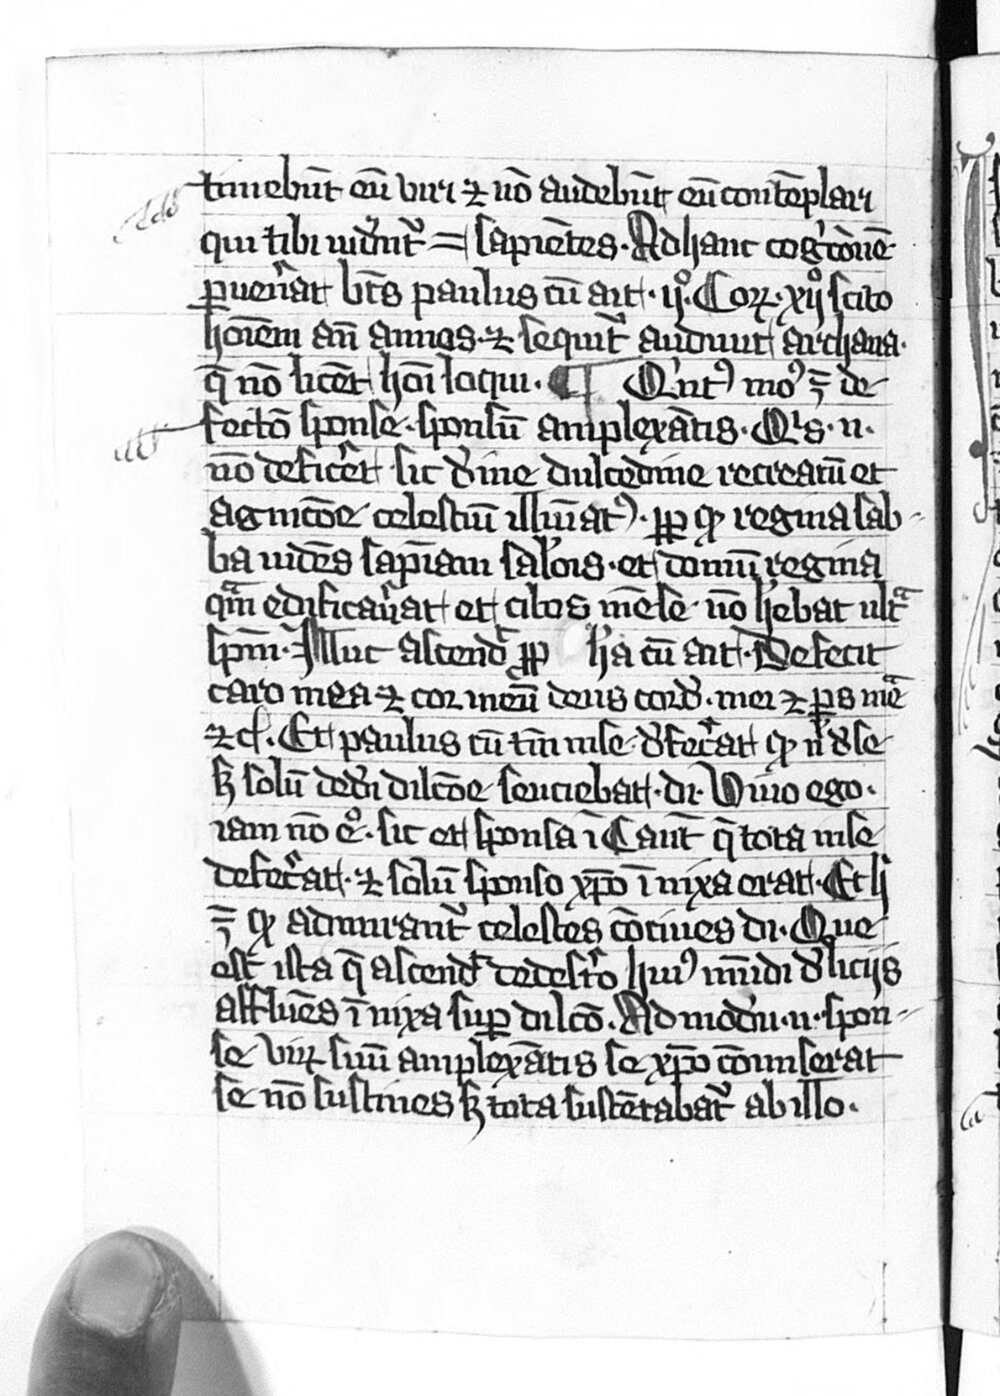 timebūt eū viri ⁊ nō audebūt eū contēplari
qui tibi uidēnt᷑ = sapiētes. Ad hanc cogᷓcōnē
ꝑuenᷓat bt̄s paulus cū ait. ijͦ. Corꝝ. xijͦ scito
hoīem an̄ annos. ⁊ sequit᷑ audiuit archana.
q̄ nō licet hoī loqui. ¶ Qⁱntꝰ modꝰ ē de
fectō sponse. sponsū amplexātis. Qⁱs. n.
nō deficet sic dⁱuine dulcedine recreatū et
agnicōe celestiū illūiatꝰ. ꝓpꝑ qđ regina sab-
ba uidēs sapīam salōis. et domū regina
qᷓm edificauᷓat et cibos mēse nō hēbat ultᷓ
spm̄. Illuc ascendᷓ ꝓp hᷓa cū ait. Defecit
caro mea ⁊ cor meū deus cordᷤ. mei ⁊ ꝑs meᷓ
⁊c̄. Et paulus cū tn̄ in se defecᷓat qđ nⁱ de se
sꝫ solū dei dilcōe senciebat. dic. Viuo ego.
iam nō eͦ. sic et sponsa ī Cant̄ q̄ tota in se
defecᷓat. ⁊ solū sponso xp̄o īnixa erat. Et h
ē qđ admirant᷑ celestes cōciues dic. Que
est ista q̄ ascendⁱt de desᷓto huiꝰ mūdi delicijs
affluēs īnixa suꝑ dilcō. Ad modū. n. spon-
se virꝝ suū amplexātis se xp̄o cōmiserat
se nō sustines sꝫ tota sustētabat᷑ ab illo.